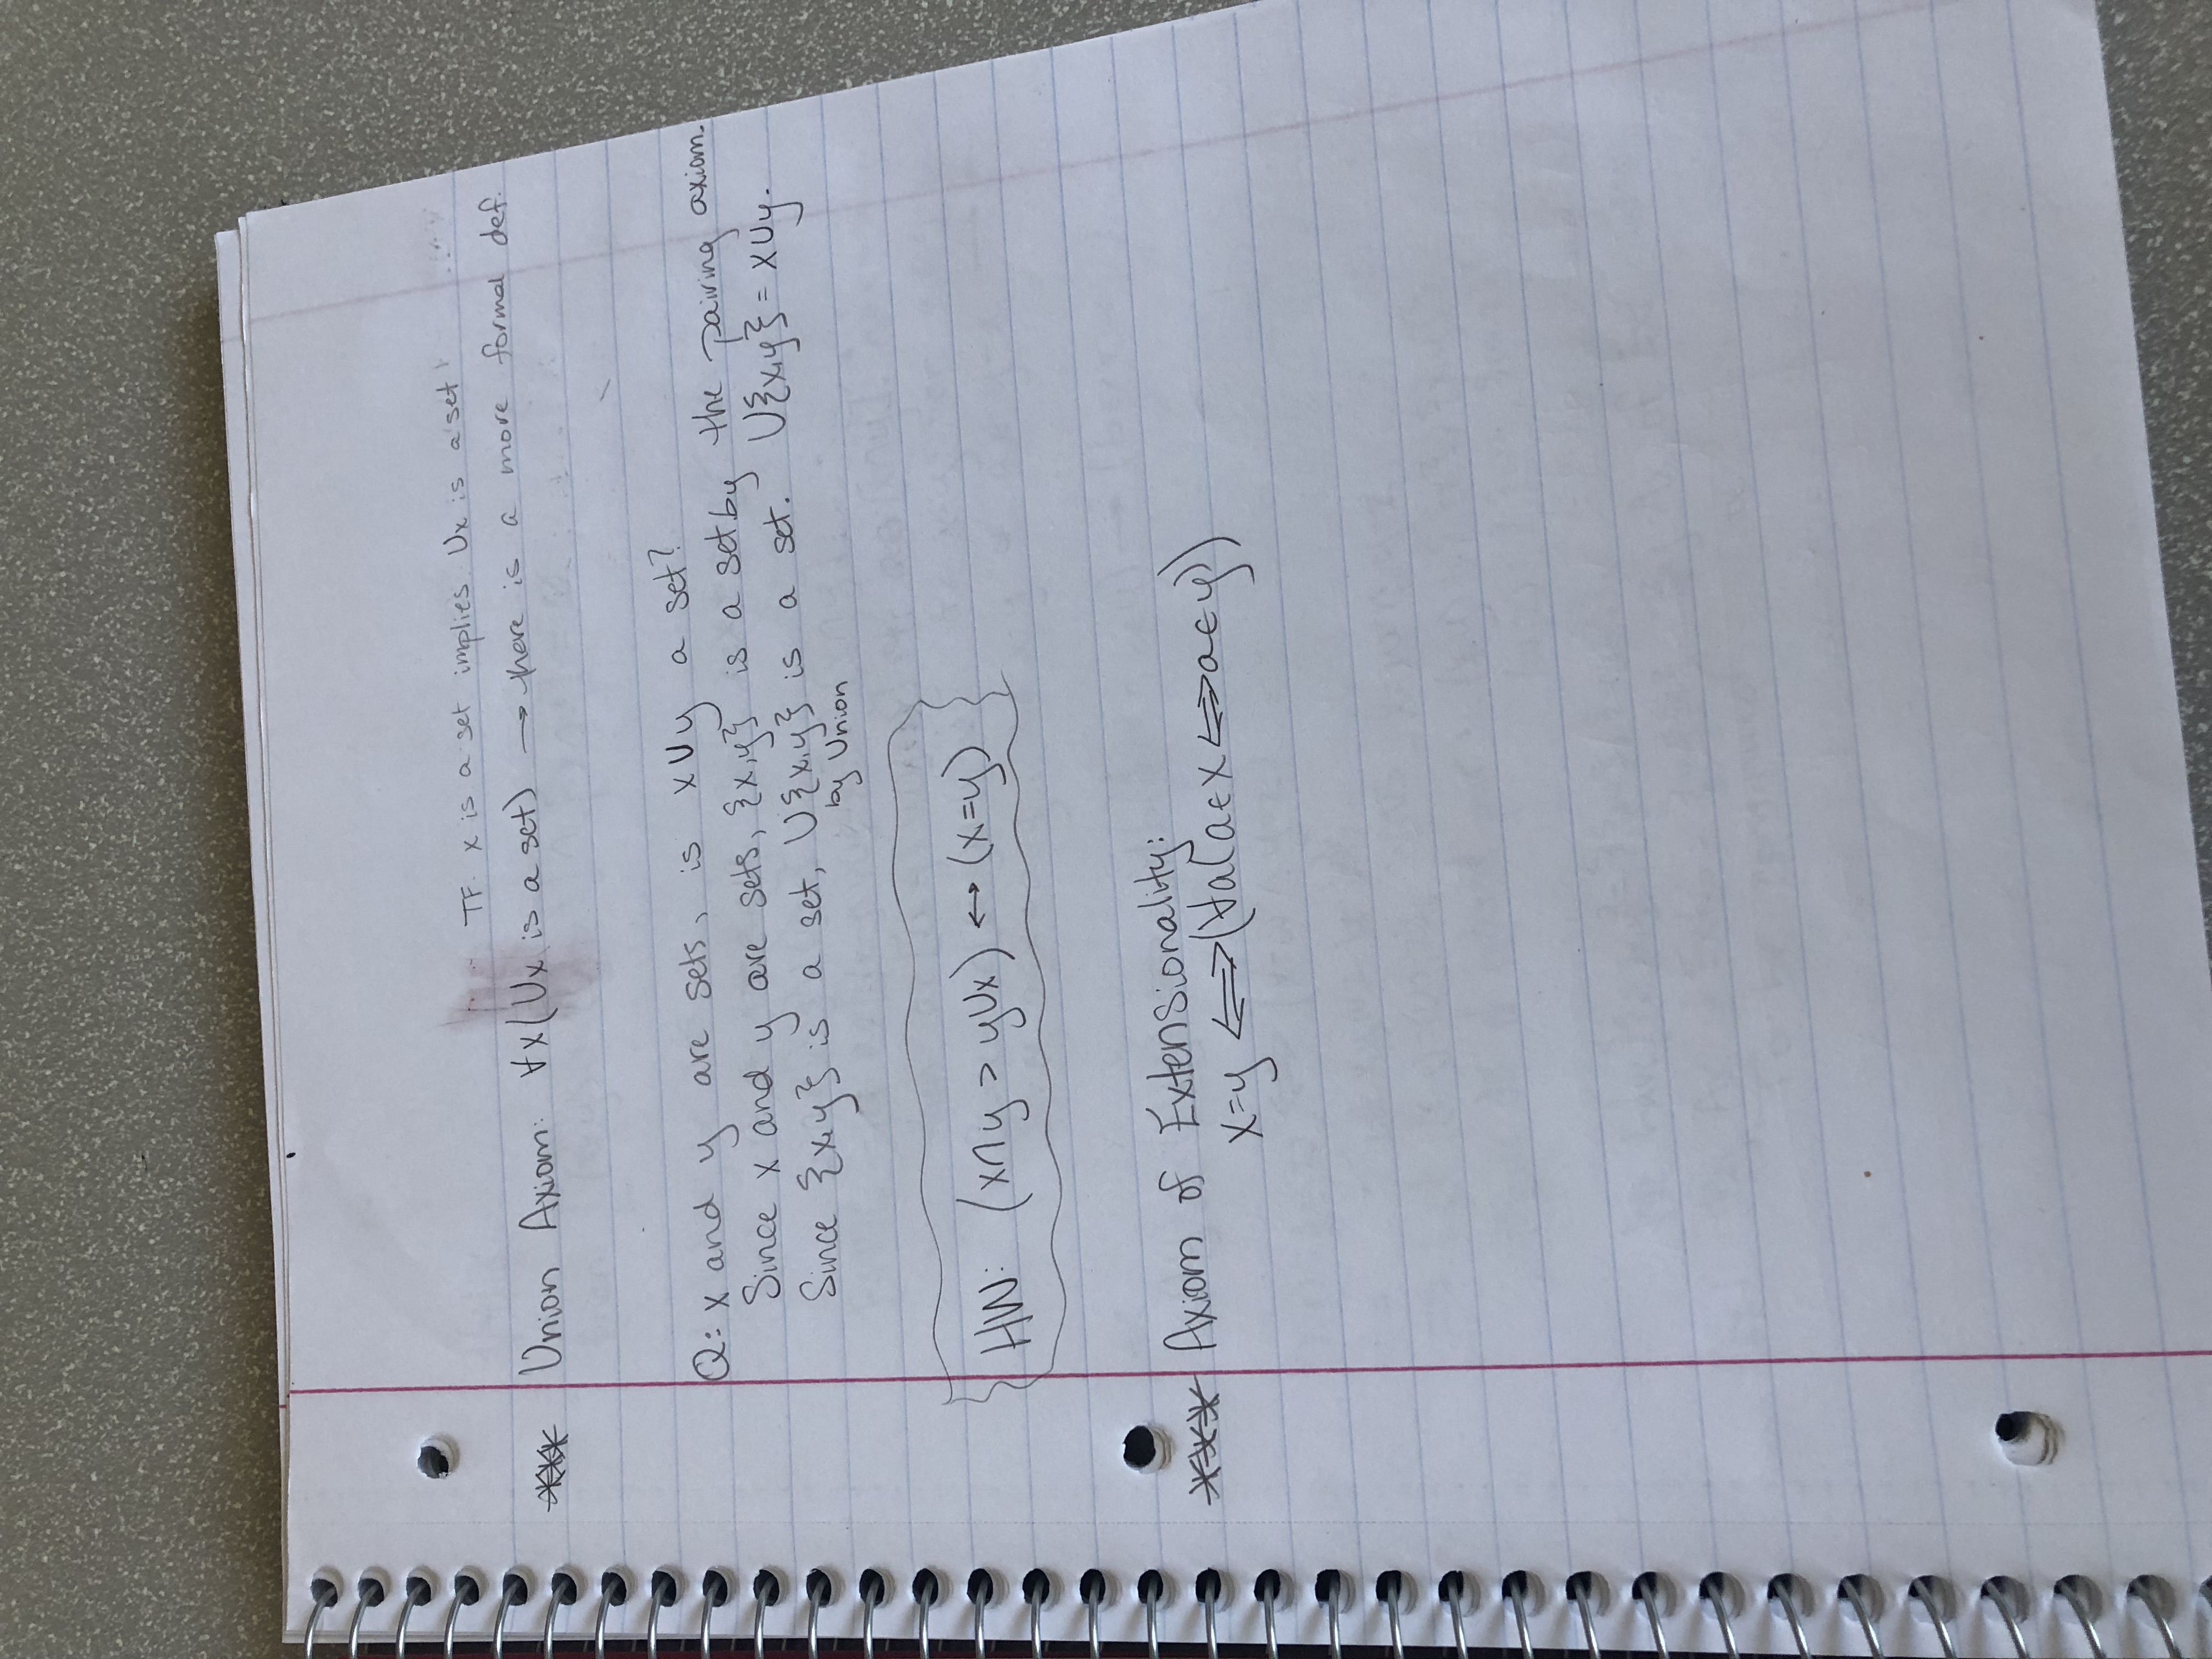 TF. x is a set implies Ux is a set
*** Union Axiom: ∀x(Ux is a set) → there is a more formal def.
Q: x and y are sets, is x∪y a set?
Since x and y are sets, {x,y} is a set by the pairing axiom.
Since {x,y} is a set, U{x,y} is a set. U{x,y} = x∪y.
by Union
HW: (x∩y > y∪x) ↔ (x=y)
*** Axiom of Extensionality:
x=y ⟺ (∀a(a∈x ⟺ a∈y))